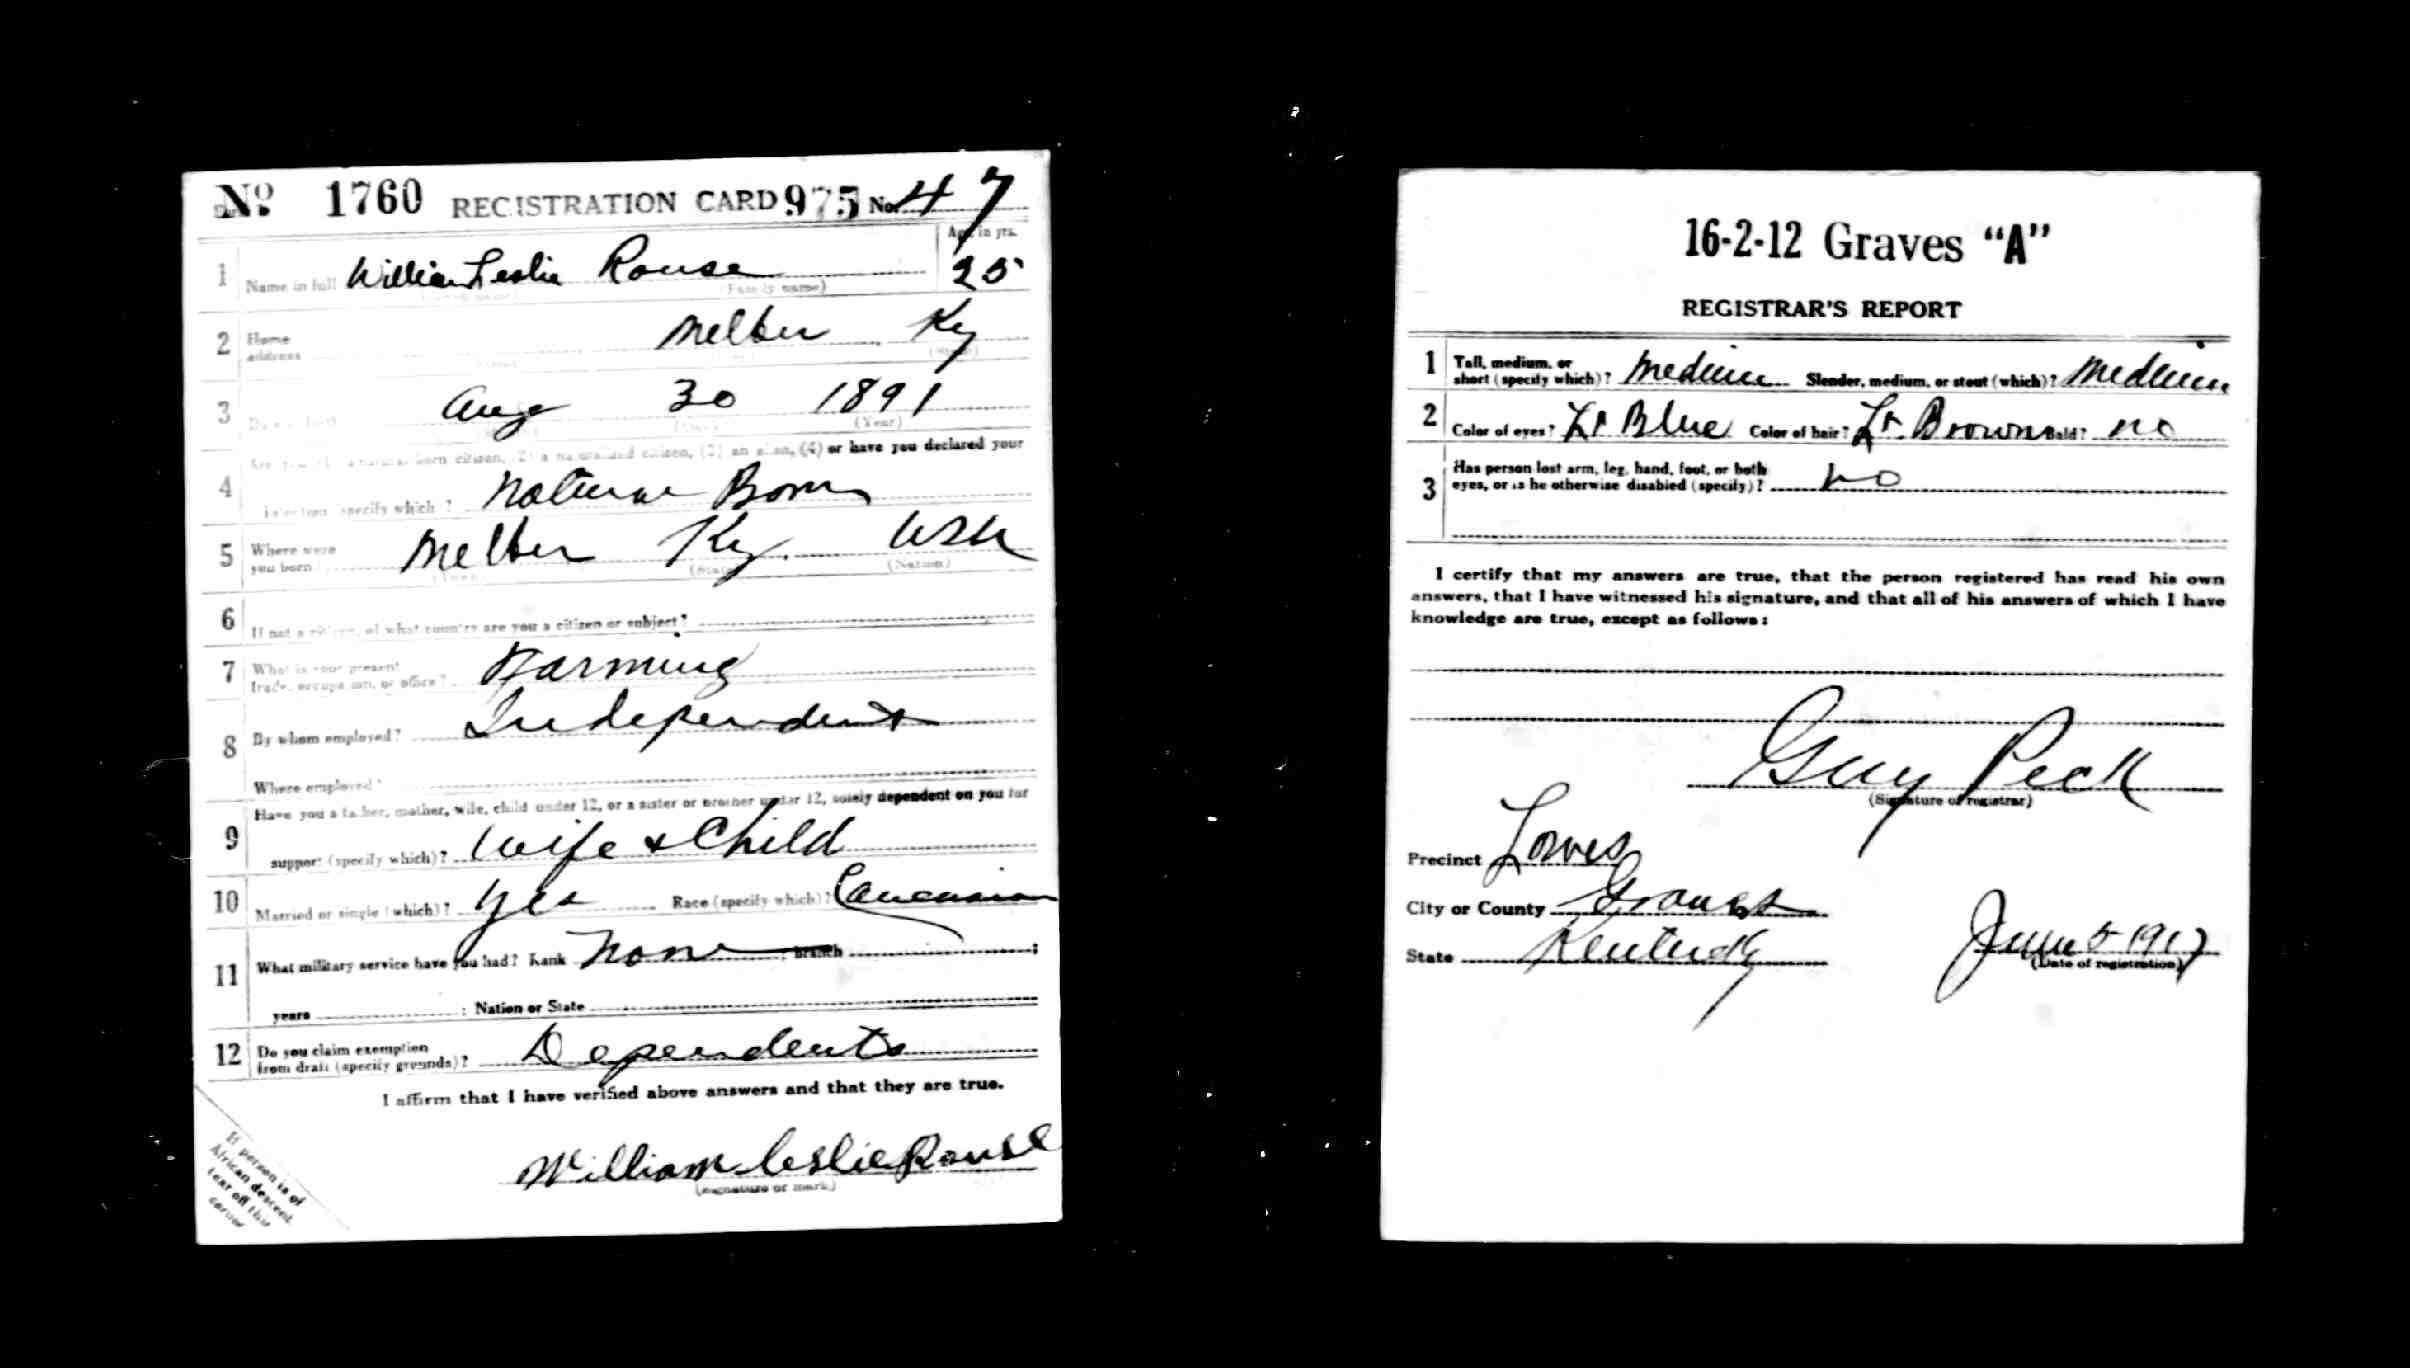 No. 1760 REGISTRATION CARD 975 No. 47
Age in yrs.
1 Name in full William Leslie Rouse 25
(Family name)
2 Home address Melber Ky
(State)
3 Aug 30 1891
(Year)
4 (2) a naturalized citizen, (3) an alien, (4) or have you declared your
specify which? Natural Born
5 Where were you born Melber Ky. USA
(State) (Nation)
6 If not a citizen, of what country are you a citizen or subject?
7 What is your present trade, occupation, or office? Farming
8 By whom employed? Independent
Where employed?
9 Have you a father, mother, wife, child under 12, or a sister or brother under 12, solely dependent on you for
support (specify which)? Wife & Child
10 Married or single (which)? Yes Race (specify which)? Caucasian
11 What military service have you had? Rank None branch ;
years ; Nation or State
12 Do you claim exemption from draft (specify grounds)? Dependents
I affirm that I have verified above answers and that they are true.
William Leslie Rouse
(Signature or mark)
If person is of
African descent
tear off this
corner
16-2-12 Graves "A"
REGISTRAR'S REPORT
1 Tall, medium, or short (specify which)? Medium Slender, medium, or stout (which)? Medium
2 Color of eyes? Lt Blue Color of hair? Lt Brown Bald? no
3 Has person lost arm, leg, hand, foot, or both eyes, or is he otherwise disabled (specify)? no
I certify that my answers are true, that the person registered has read his own
answers, that I have witnessed his signature, and that all of his answers of which I have
knowledge are true, except as follows:
Guy Peck
(Signature of registrar)
Precinct Lowes
City or County Graves
State Kentucky June 5 1917
(Date of registration)